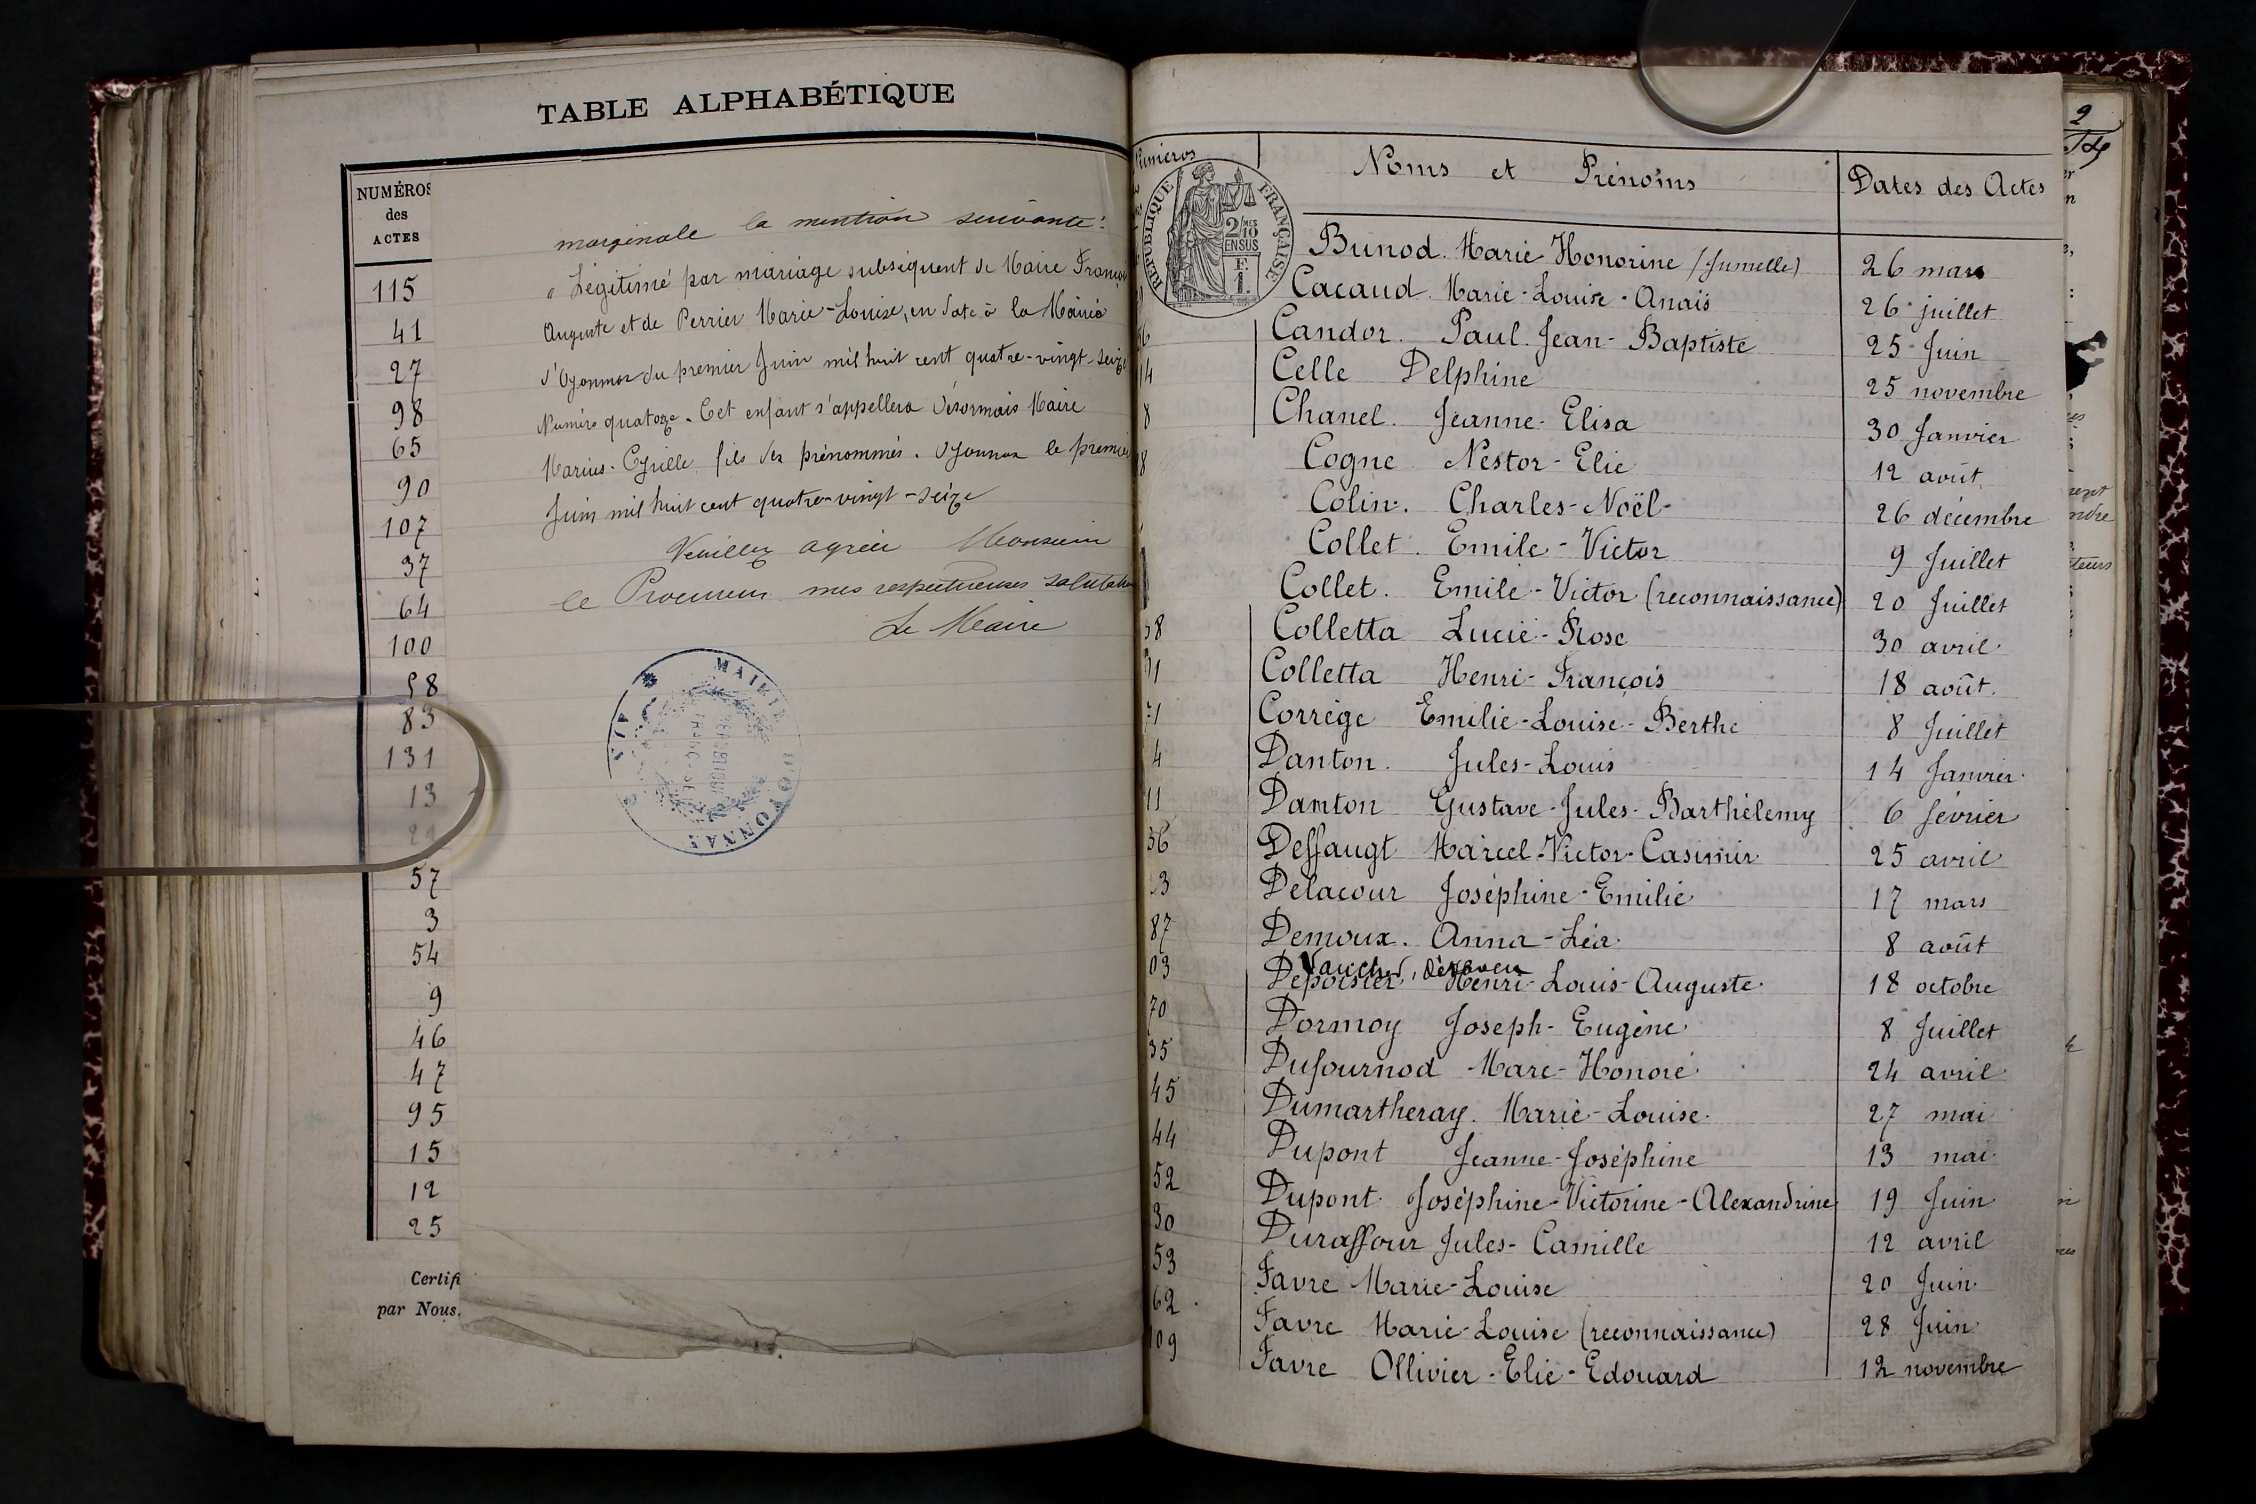 TABLE ALPHABÉTIQUE
NUMÉROS
des
ACTES
115
41
27
98
65
90
107
37
64
100
58
83
131
13
57
3
54
9
46
47
95
15
12
25
Certifi
par Nous.
marginale la mention suivante:
" Légitimé par mariage subséquent de Maire Franço
Auguste et de Perrier Marie-Louise, en date à la Mairie
d'Oyonnax du premier Juin mil huit cent quatre-vingt-seize
Numéro quatorze. Cet enfant s'appellera désormais Maire
Marius-Cyrille fils des prénommés. Oyonnax le premier
Juin mil huit cent quatre-vingt-seize
Veuillez agréer Monsieur
le Procureur mes respectueuses salutations
Le Maire
MAIRIE D'OYONNAX
AIN
Numéros
Noms et Prénoms
Dates des Actes
RÉPUBLIQUE FRANÇAISE
2/10 MES
EN SUS
F.
1.
Bunod. Marie Honorine (Jumelle) 26 mars
Cacaud. Marie-Louise-Anaïs 26 juillet
Candor. Paul. Jean-Baptiste 25 Juin
14 Celle Delphine 25 novembre
8 Chanel. Jeanne-Elisa 30 Janvier
Cogne Nestor-Elie 12 août
Colin. Charles-Noël 26 décembre
Collet. Emile-Victor 9 Juillet
Collet. Emile-Victor (reconnaissance) 20 Juillet
38 Colletta Lucie-Rose 30 avril
91 Colletta Henri-François 18 août
71 Corrège Emilie-Louise-Berthe 8 Juillet
4 Danton. Jules-Louis 14 Janvier
11 Damton Gustave-Jules-Barthélemy 6 février
36 Deffaugt Marcel-Victor-Casimir 25 avril
23 Delacour Joséphine-Emilie 17 mars
87 Demoux. Anna-Léa 8 août
Vaucher, désaveu
03 Depoisier Henri-Louis-Auguste 18 octobre
70 Dormoy Joseph-Eugène 8 Juillet
35 Dufournod Marc-Honoré 24 avril
45 Dumartheray. Marie-Louise 27 mai
44 Dupont Jeanne-Joséphine 13 mai
52 Dupont Joséphine-Victorine-Alexandrine 19 Juin
30 Duraffour Jules-Camille 12 avril
53 Favre Marie-Louise 20 Juin
62 Favre Marie-Louise (reconnaissance) 28 Juin
109 Favre Ollivier-Elie-Edouard 12 novembre
2